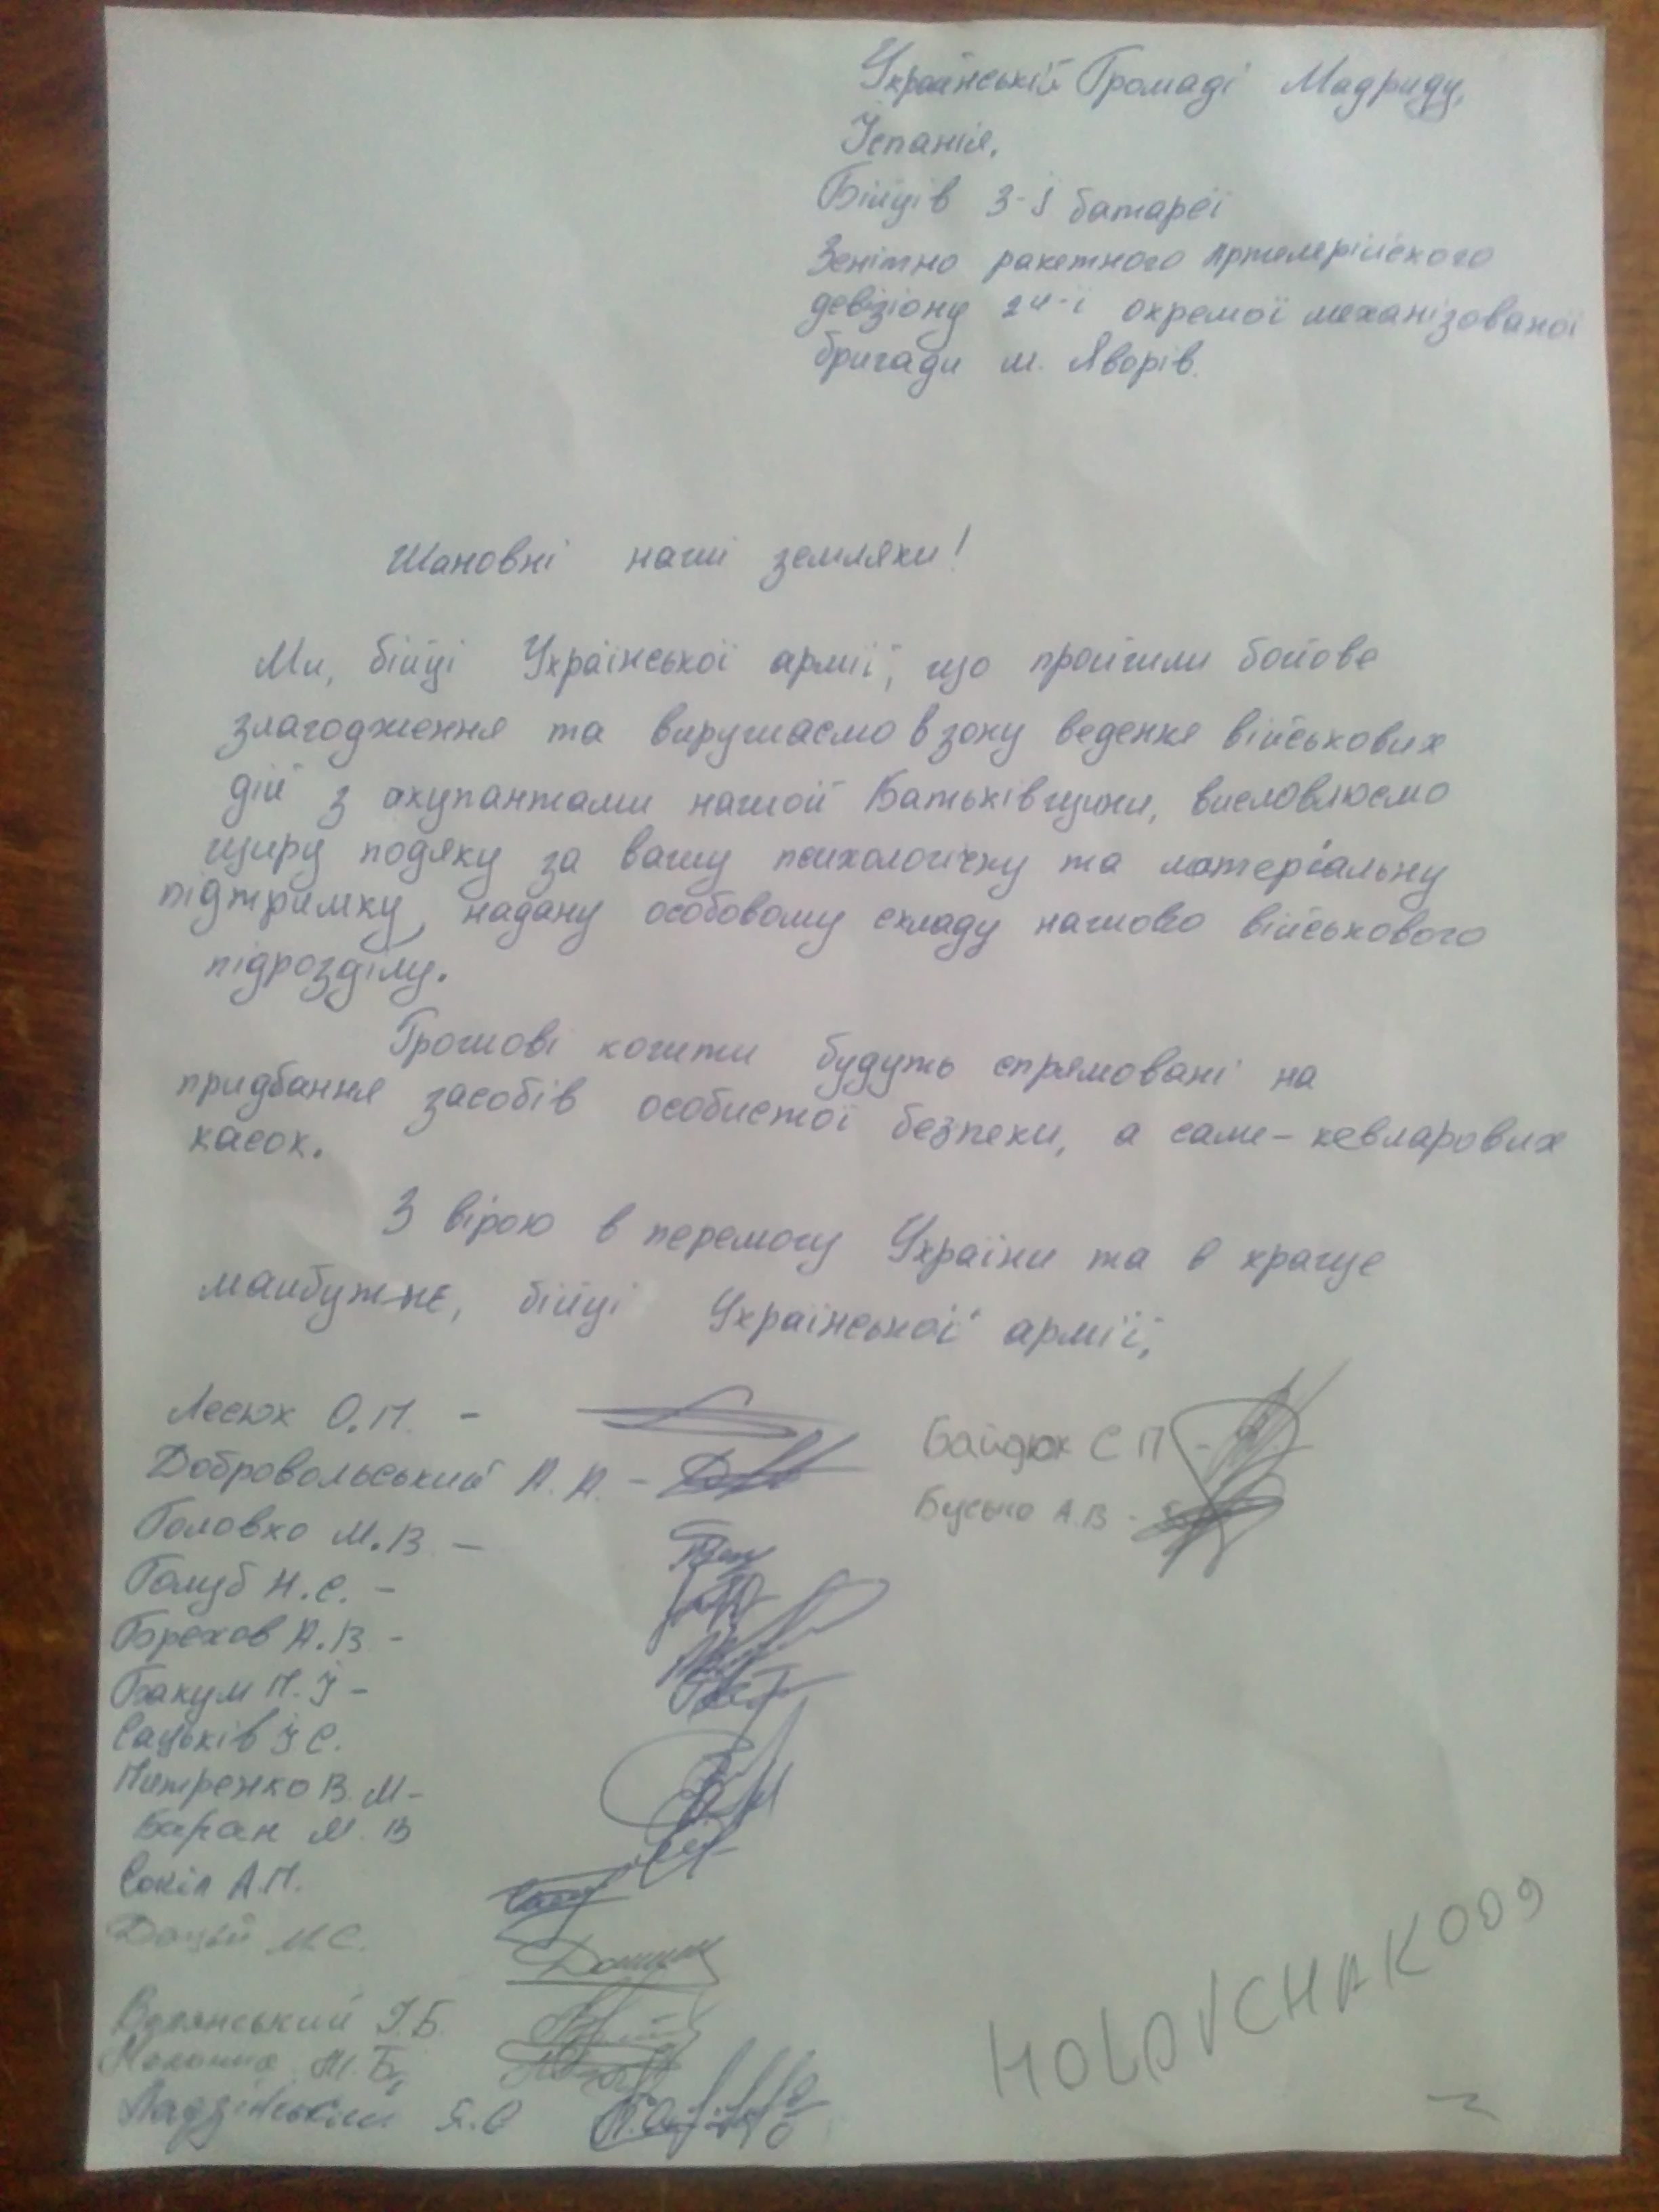 Українській Громаді Мадриду,
Іспанія.
Бійців 3-ї батареї
Зенітно ракетного Артелерійского
девізіону 24-ї окремої механізованої
бригади м. Яворів.
Шановні наші земляки!
Ми, бійці Української армії, що пройшли бойове
злагодження та вирушаємо в зону ведення військових
дій з окупантами нашой Батьківщини, висловлюємо
щиру подяку за вашу психологічну та матеріальну
підтримку, надану особовому складу нашого військового
підрозділу.
Грошові кошти будуть спрямовані на
придбання засобів особистої безпеки, а саме - кевларових
касок.
З вірою в перемогу України та в краще
майбутнє, бійці Української армії,
Лесюк О.П. -
Добровольський А.А. -
Головко М.В -
Голуб Н.С. -
Горехов А.В -
Бакум П.І -
Сацьків І С.
Питренко В. М -
Баран М. В
Сокіл А.П.
М.С.
І.Б.
М.Б.
Ладзінський Я.О
Байдюк С П -
Бусько А.В -
HOLOVCHAK009